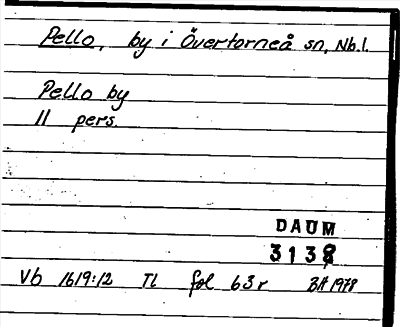 Pello, by i Övertorneå sn, Nb.l.
Pello by
11 pers.
DAUM
3138
Vb 1619:12 Tl fol 63r BH 1978